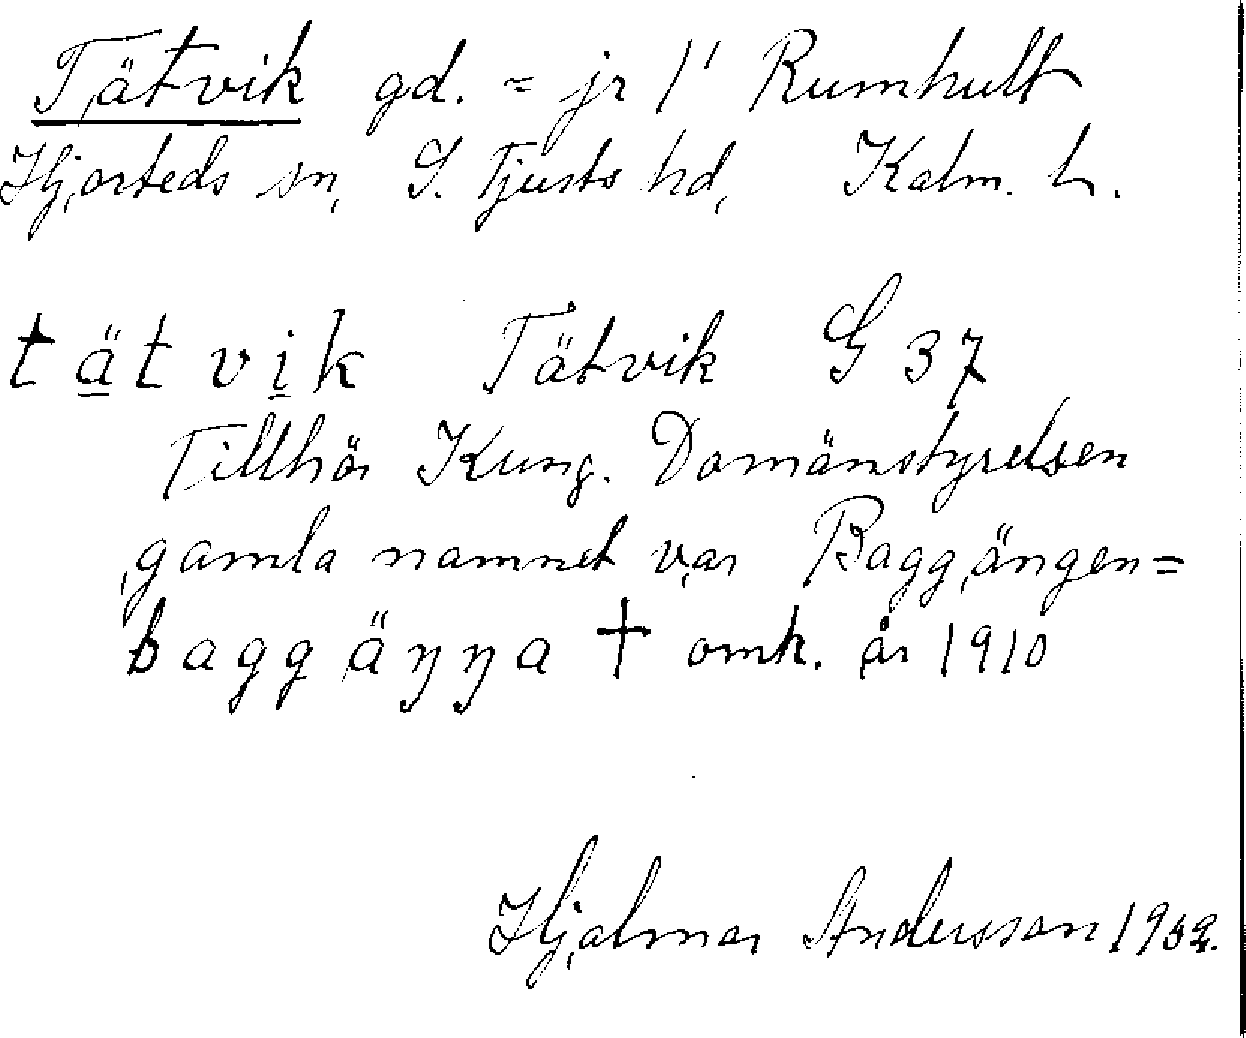 Tätvik gd. = jr 1¹ Rumhult
Hjorteds sn, S. Tjusts hd, Kalm. L.
tätvik Tätvik G 37
Tillhör Kung. Domänstyrelsen
gamla namnet var Baggängen=
baggäŋŋa † omk. år 1910
Hjalmar Andersson